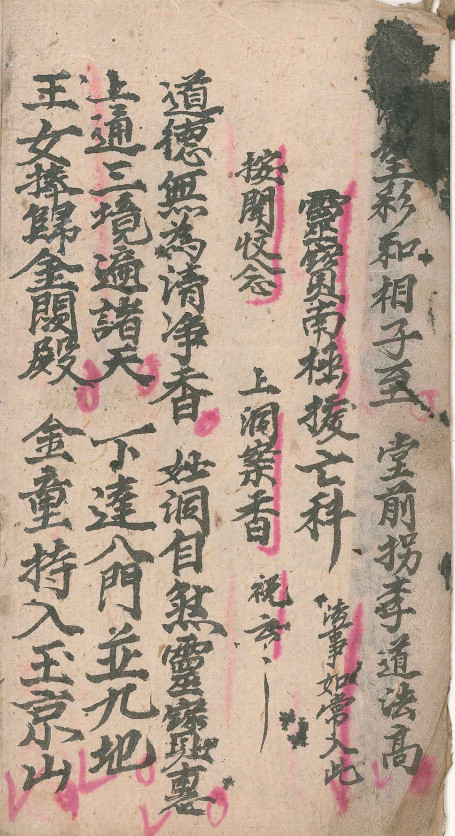 彩和相子至 堂前拐李道法高
靈寳南極援亡科 法事如常入此
按開收念 上洞案香 祝方
道德無為清净香 洞自然靈寳
上通三境遍諸天 下達八門並九地
王女捧歸金闕殿 金童持入玉京山